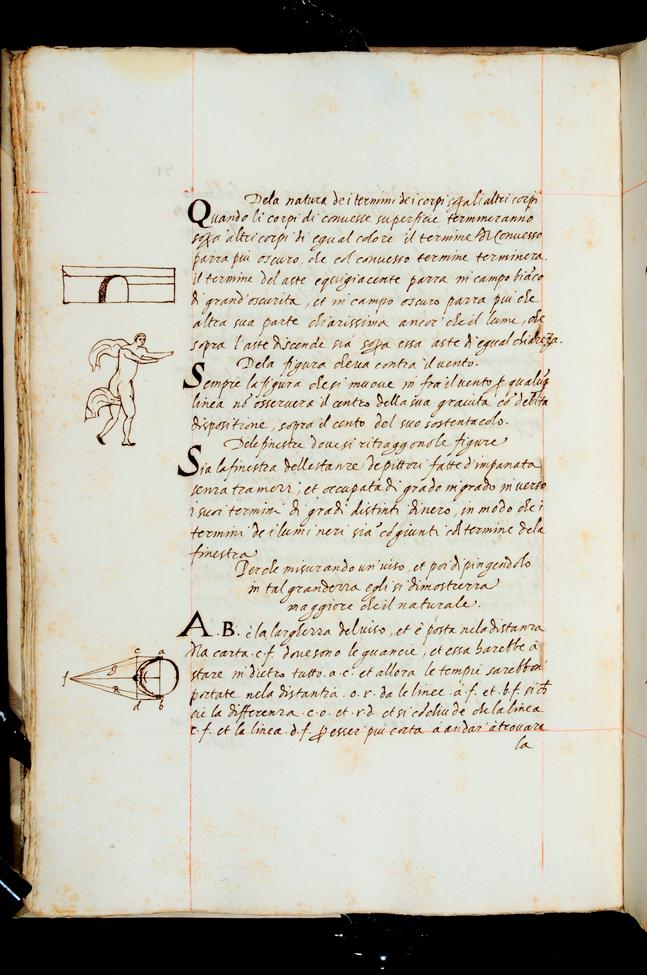 Dela natura dei termini dei corpi sopra li altri corpi
Quando li corpi di convesse superfitie termineranno
sopra altri corpi di egual colore il termine del Convesso
parra piu oscuro, che col convesso termine terminera.
il termine del aste equigiacente parra in campo biāco
di grand' oscurita, et in campo oscuro parra piu che
altra sua parte chiarissima ancor che il lume, che
sopra l'aste discende sia sopra essa aste di egual chiareza.
Dela figura che va contra il vento.
Sempre la figura che si muove in fra il vento p qualūq
linea nō osservera il centro della sua gravita cō debita
dispositione, sopra il cento del suo sostentacolo.
Dele finestre dove si ritraggono le figure
Sia la finestra delle stanze de pittori fatte d'impanata
senza tramezzi, et occupata di grado in grado in verso
i suoi termini di gradi distinti di nero, in modo che i
termini de i lumi neri sia' cōgiunti col termine dela
finestra
Perche misurando un viso, et poi dipingendolo
in tal grandezza egli si dimostrerra
maggiore che il naturale.
A. B. è la larghezza del viso, et è posta nela distanza
dla carta .c.f. dove sono le guancie, et essa harebbe à
stare in dietro tutto .a.c. et allora le tempie sarebbon'
portate nela distantia .o.r. da le linee .à.f. et .b.f. si ch
cie la differenza .c.o. et .r.d. et si cōchiude che la linea
c.f. et la linea .d.f. p esser piu corta a andar' à trovare
la
f
c
a
d
b